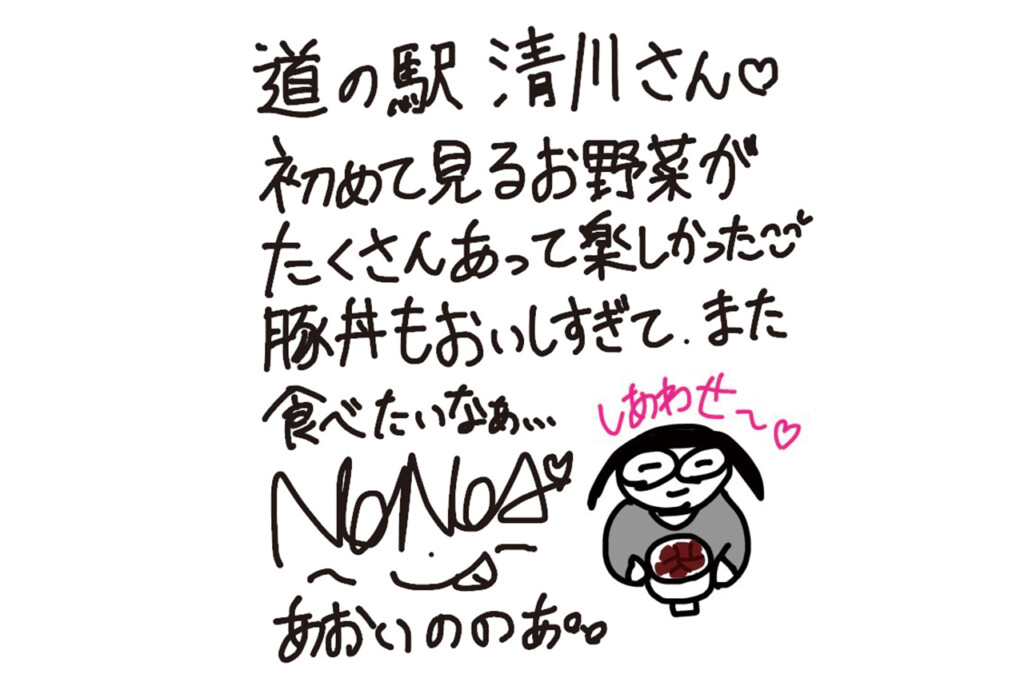 道の駅 清川さん♡
初めて見るお野菜が
たくさんあって楽しかった
豚丼もおいしすぎて.また
食べたいなぁ...
しあわせ〜♡
NoNoA♡
あおいののあ